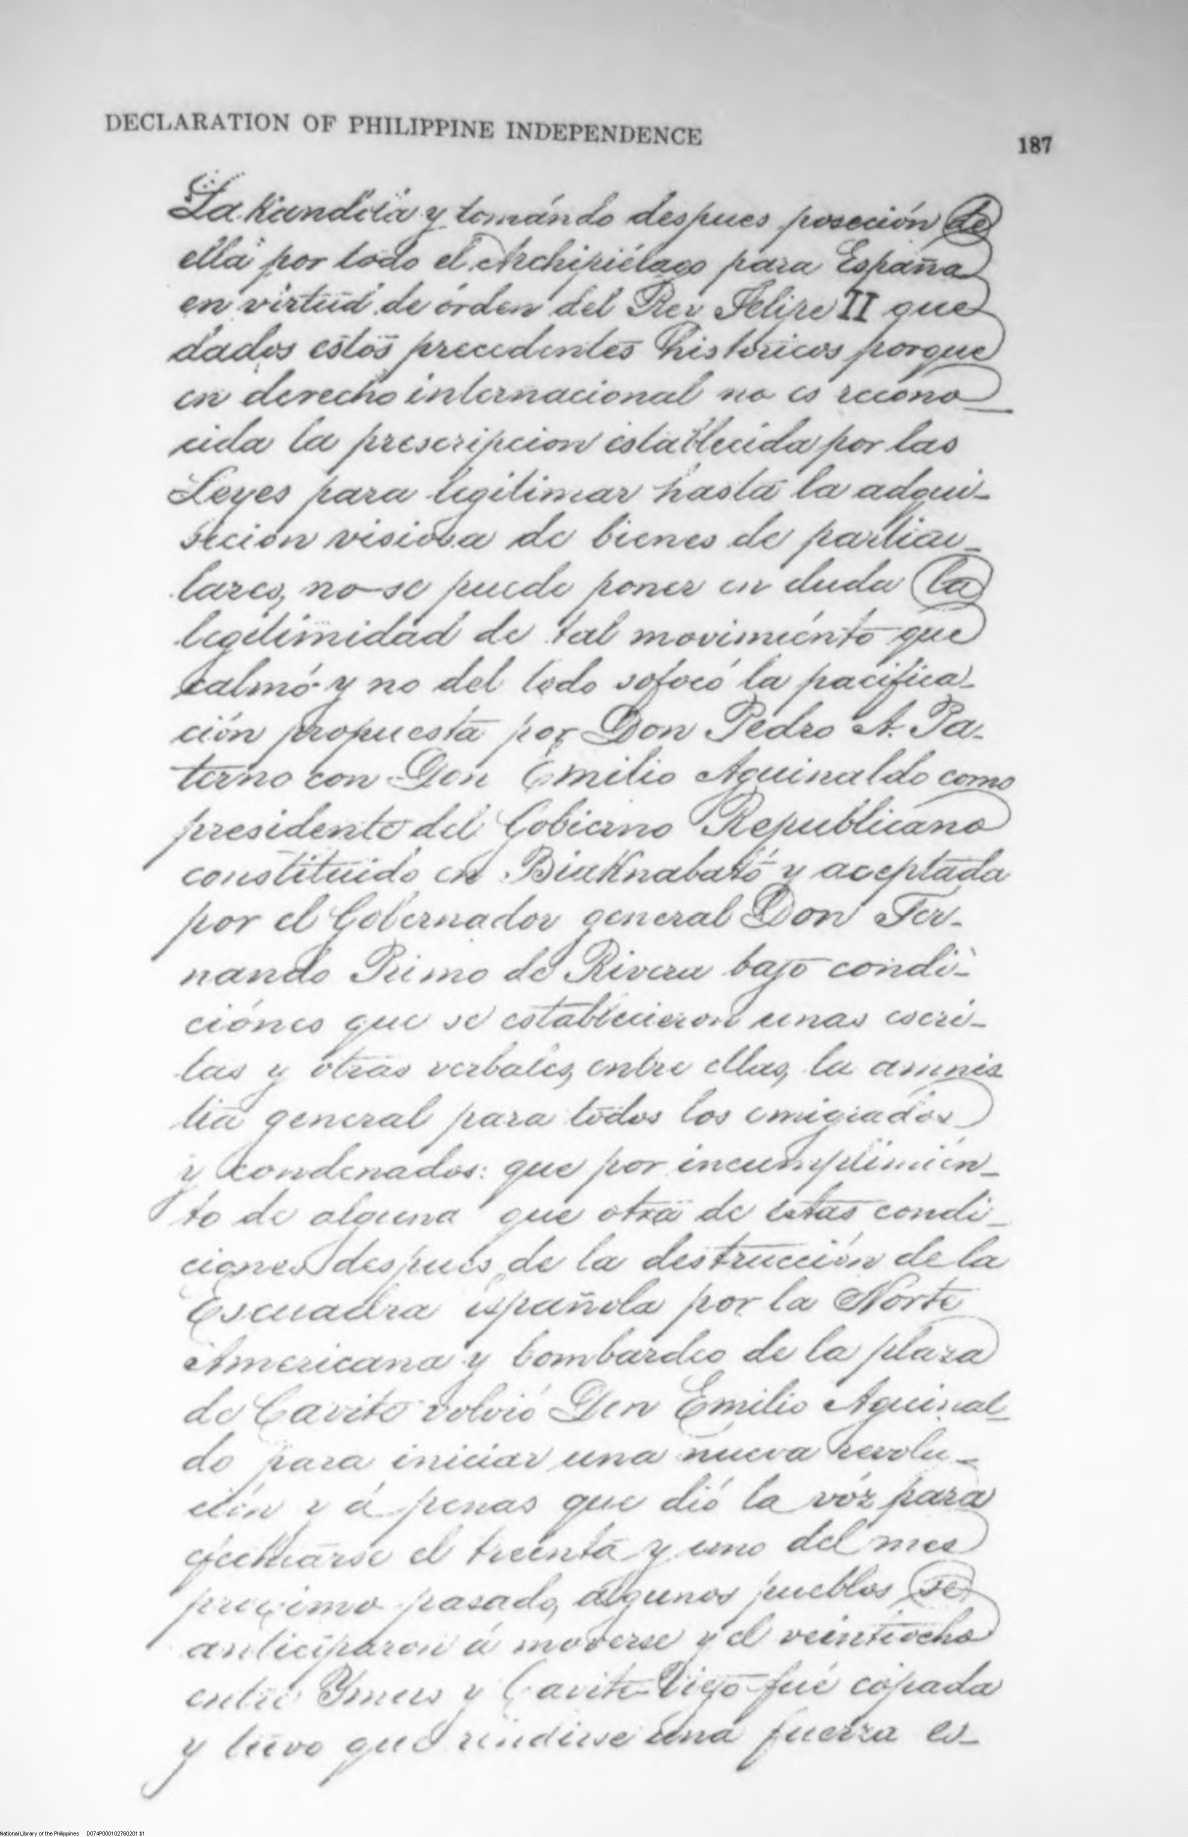 DECLARATION OF PHILIPPINE INDEPENDENCE
187
La Kandóla y tomándo despues poseción de
ella por todo el Archipiélago para España
en virtud de órden del Rey Felipe II que
dados estos precedentes históricos porque
en derecho internacional no es recono
cida la prescripcion establecida por las
Leyes para legitimar hasta la adqui-
sicion visiosa de bienes de particu-
lares, no se puede poner en duda la
legitimidad de tal movimiénto que
calmó y no del todo sofocó la pacifica-
ción propuesta por Don Pedro A. Pa-
terno con Don Emilio Aguinaldo como
presidente del Gobierno Republicano
constituido en Biaknabató y aceptada
por el Gobernador general Don Fer-
nando Primo de Rivera bajo condi-
ciónes que se establecieron unas escri-
tas y otras verbales, entre ellas, la amnis
tia general para todos los emigrados
y condenados: que por incumplimién-
to de alguna que otra de estas condi-
ciones después de la destrucción de la
Escuadra española por la Norte
Americana y bombardeo de la plaza
de Cavite volvió Don Emilio Aguinal-
do para iniciar una nueva revolu-
ción y á penas que dió la vóz para
efectuarse el treinta y uno del mes
proximo pasado, algunos pueblos se
anticiparon á moverse y el veintiocho
entre Ymus y Cavite-Viejo fué copada
y tuvo que rindirse una fuerza es-
National Library of the Philippines